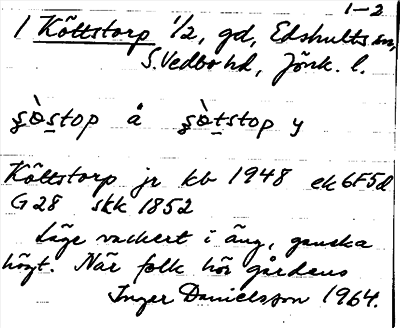 1-2
1 Köttstorp 1/2, gd, Edshults sn,
S. Vedbo hd, Jönk. l.
ʂò̱stop å ʂò̱tstop y
Köttstorp jr kb 1948 ek 6F5d
G28 skk 1852
Läge vackert i äng, ganska
högt. När folk hör gårdens
Inger Danielsson 1964.